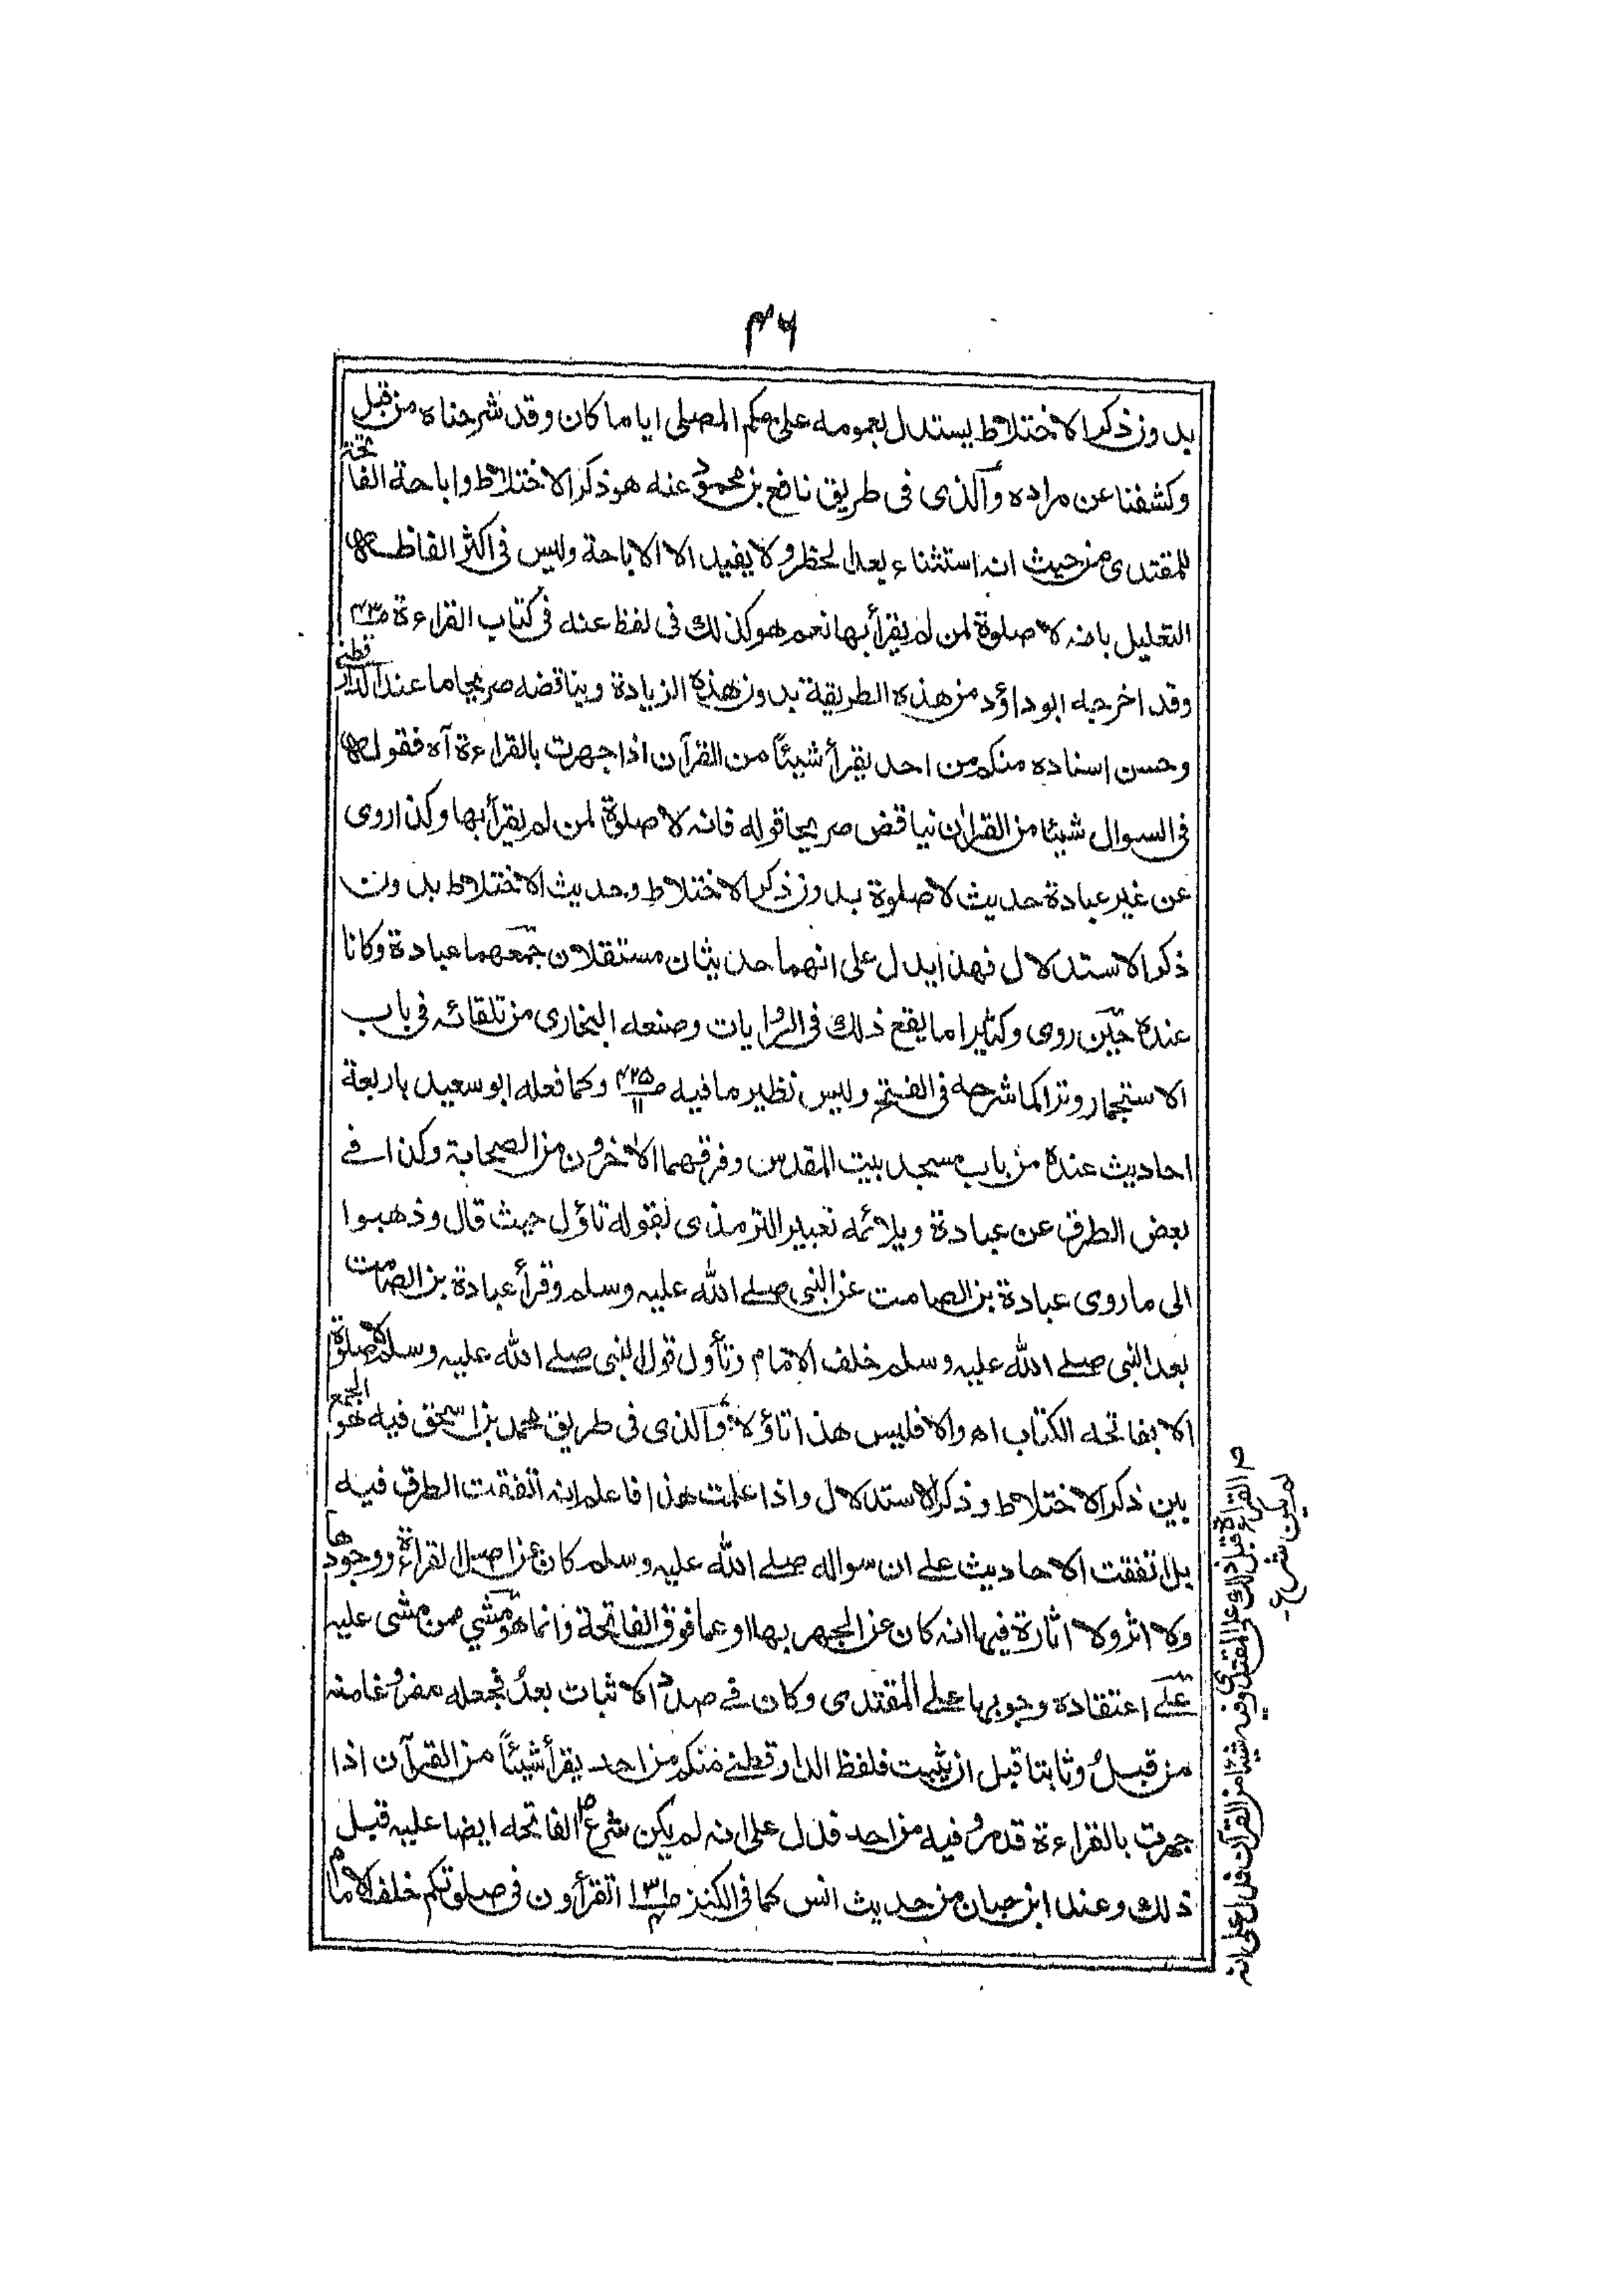 ٤٦
بدون ذكر الاختلاط يستدل بعمومه على حكم المصلى اياما كان وقد شرحناه من قبل
وكشفنا عن مراده وآلذى فى طريق نافع بن محمود عنه هو ذكر الاختلاط واباحة الفاتحة
للمقتدى من حيث انه استثناء بعد الحظر ولا يفيد الا الاباحة وليس فى اكثر الفاظه
التعليل بانه لا صلوة لمن لم يقرأ بها نعم هو كذلك فى لفظ عنه فى كتاب القراءة ص٤٣
وقد اخرجه ابو داؤد من هذه الطريقة بدون هذه الزيادة ويناقضه صريحا ما عند الدارقطنى
وحسن اسناده منكم من احد يقرأ شيئاً من القرآن اذا جهرت بالقراءة آه فقوله
فى السوال شيئا من القرأن يناقض صريحا قوله فانه لا صلوة لمن لم يقرأ بها وكذا روى
عن غير عبادة حديث لا صلوة بدون ذكر الاختلاط وحديث الاختلاط بدون
ذكر الاستدلال فهذا يدل على انهما حديثان مستقلان جمعهما عبادة وكانا
عنده حين روى وكثيرا ما يقع ذلك فى الروايات وصنعه البخارى من تلقائه فى باب
الاستجمار وترا كما شرحه فى الفتح وليس نظير ما فيه ص٤٢٥/١١ وكما فعله ابو سعيد باربعة
احاديث عنده من باب مسجد بيت المقدس وفرقهما الأخرون من الصحابة وكذا فے
بعض الطرق عن عبادة ويلائمه تعبير الترمذى بقوله تاؤل حيث قال وذهبوا
الى ما روى عبادة بن الصامت عن النبى صلے الله عليه وسلم وقرأ عبادة بن الصامت
بعد النبى صلے الله عليه وسلم خلف الامام وتأول قول النبى صلے الله عليه وسلم لا صلوة
الا بفاتحه الكتاب اه والا فليس هذا تاؤلا وآلذى فى طريق محمد بن اسحق فيه هو الجمع
بين ذكر الاختلاط وذكر الاستدلال واذا علمت هذا فاعلم انه اتفقت الطرق فيه
بل اتفقت الاحاديث علے ان سواله صلے الله عليه وسلم كان عن اصل القراءة ووجودها
ولا اثر ولا اثارة فيها انه كان عن الجهر بها او عما فوق الفاتحة وانما هو مشي ممن مشى عليه
علے اعتقاده وجوبها علے المقتدى وكان فے صدد الاثبات بعدُ فجعله مفروغا منه
من قبلُ وثابتا قبل ان يثبت فلفظ الدارقطنے منكم من احد يقرأ شيئاً من القرآن اذا
جهرت بالقراءة قد مر وفيه من احد فدل على انه لم يكن شرع الفاتحه ايضا عليه قبل
ذلك وعند ابن حبان من حديث انس كما فى الكنز ص١٣١/٤ اتقرأون فى صلوتكم خلف الامام
القراءة قبل ذلك على المقتدى وفى شيئا من القرآن فدل على انه
لم يكن شرع